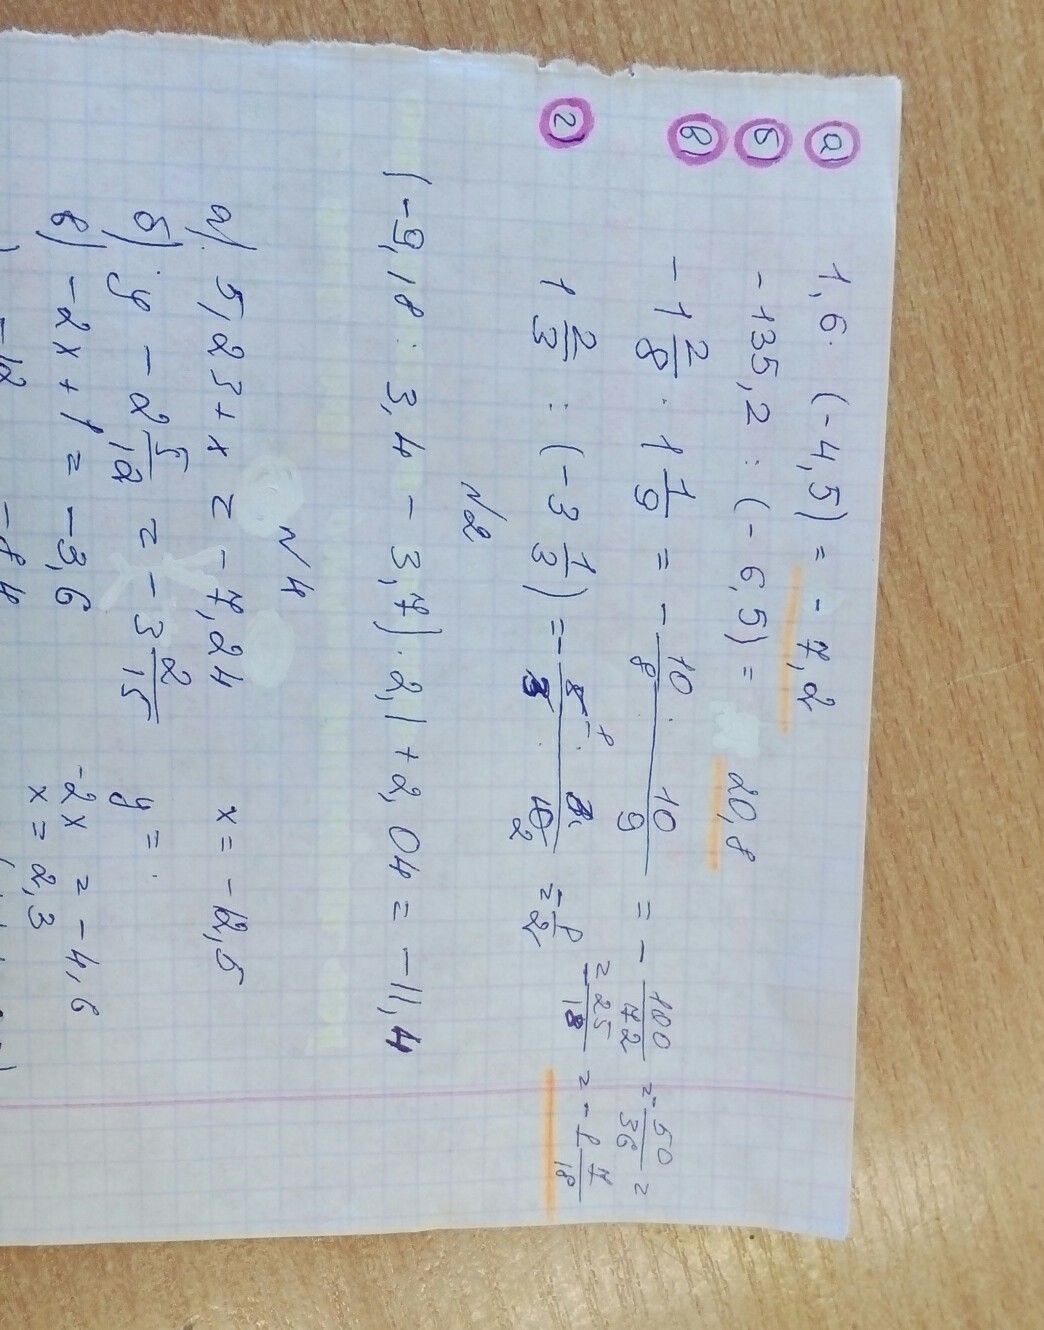 а) 1,6 · (-4,5) = -7,2
б) -135,2 : (-6,5) = 20,8
в) -1 2/8 · 1 1/9 = - 10/8 · 10/9 = - 100/72 = - 50/36 =
= - 25/18 = -1 7/18
г) 1 2/3 : (-3 1/3) = - 5/3 · 3/10 = - 1/2
№2
(-9,18 : 3,4 - 3,7) · 2,1 + 2,04 = -11,4
№4
а) 5,23 + x = -7,24 x = -12,5
б) y - 2 5/12 = -3 2/15 y =
в) -2x + 1 = -3,6 -2x = -4,6
x = 2,3